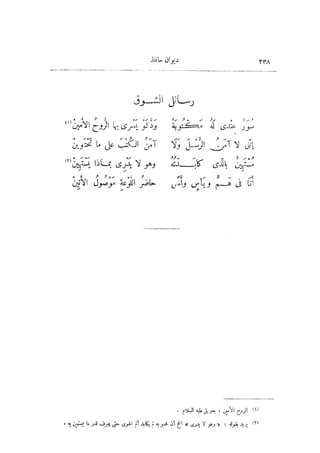 ديوان حافظ
٢٣٨
رسائل الشوق
سُوَرٌ عِنْدِي لَهُ مَكْتُوبَةٌ وَدَّ لَوْ يَسْرِي بِهَا الرُّوحُ الأَمِينْ (١)
إِنَّنِي لا آمَنُ الرُّسْلَ وَلَا آمَنُ الكُتْبَ على ما تَحْتَوِينْ
مُسْتَهِينٌ بِالَّذِي كَابَدْتُهُ وهو لا يَدْرِي بِمَاذَا يَسْتَهِينْ (٢)
أَنَا فى هَمٍّ ويَأْسٍ وأَسًى حاضِرُ اللَّوْعَةِ مَوْصُولُ الأَنِينْ
(١) الروح الأمين : جبريل عليه السلام .
(٢) يريد بقوله : « وهو لا يدرى » الخ أن محبوبه لم يكابد ألم الهوى حتى يعرف قدر ما يستهين به .